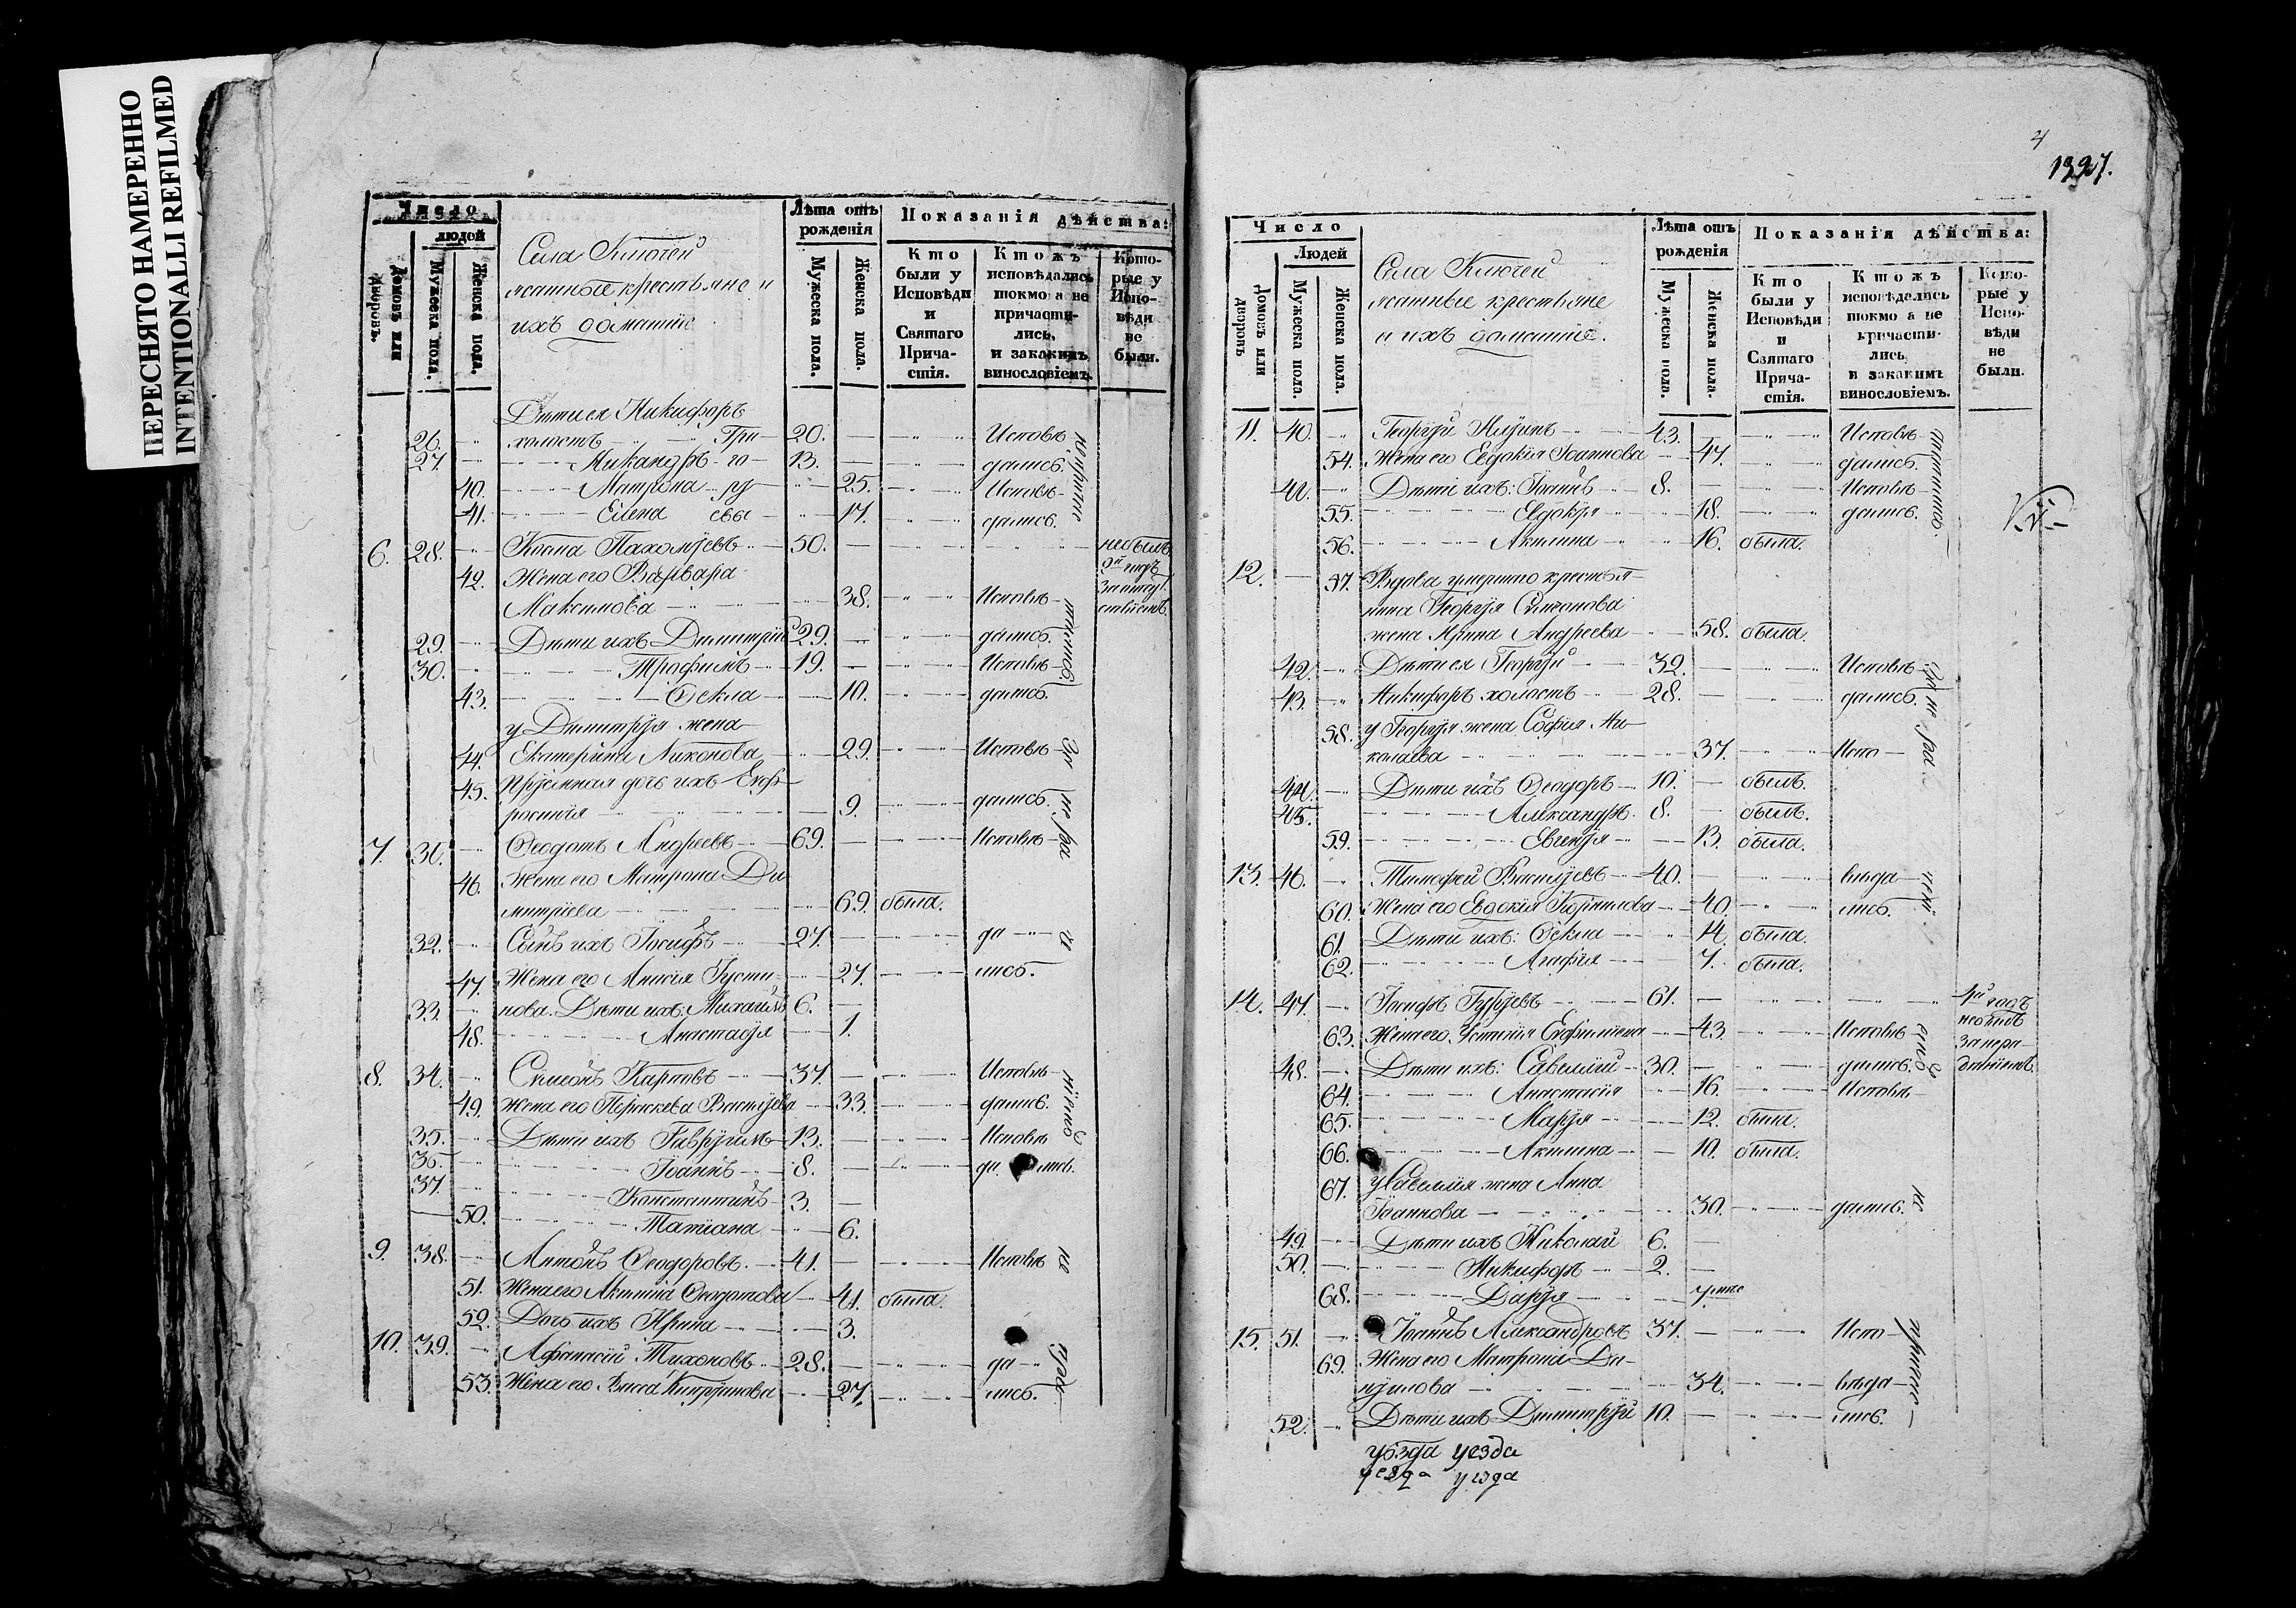 ПЕРЕСНЯТО НАМЕРЕННО
INTENTIONALLI REFILMED
Число
людей
Домовъ или дворовъ.
Мужеска пола.
Женска пола.
Села Ключей
ясашные крестьяне и
ихъ домашніе
Лѣта отъ рожденія
Мужеска пола.
Женска пола.
Показанія дѣйства:
Кто были у Исповѣди и Святаго Причастія.
Ктожъ исповѣдались токмо а не причастились, и закакимъ винословіемъ.
Которые у Исповѣди не были.
Дѣти ея Никифоръ
26. холостъ 20. Исповѣ
27. Никандръ 13. дались.
40. Матрона 25. Исповѣ
41. Елена 17. дались.
6. 28. Косма Пахоміевъ 50. небылъ
42. Жена его Варвара
Максимова 38. Исповѣ
29. Дѣти ихъ Димитрій 29. дались.
30. Трофимъ 19. Исповѣ
43. Ѳекла 10. дались.
у Димитрія жена
44. Екатерина Никонова 29. Исповѣ
45. Пріемная дочь ихъ Евф
росинія 9. дались.
7. 31. Ѳеодотъ Андреевъ 69. Исповѣ
46. Жена его Матрона Ди
митріева 69. была.
32. Сынъ ихъ Іосифъ 27. да
47. Жена его Анисія Іусти 27. лись.
33. нова. Дѣти ихъ: Михаилъ 6.
48. Анастасія 1.
8. 34. Симеонъ Карповъ 37. Исповѣ
49. Жена его Параскева Васильева 33. дались.
35. Дѣти ихъ Гавріилъ 13. Исповѣ
36. Іоаннъ 8. да лись.
37. Константинъ 3.
50. Татіана 6.
9. 38. Антонъ Ѳеодоровъ. 41. Исповѣ не
51. Жена его Акилина Ѳеодотова 41. была.
52. Дочь ихъ Ирина 3.
10. 39. Аѳанасій Тихоновъ 28. да
53. Жена его Васса Кипріянова 27. лись.
4
1397.
Число
Людей
Домовъ или дворовъ
Мужеска пола.
Женска пола.
Села Ключей
ясашные крестьяне
и ихъ домашніе.
Лѣта отъ рожденія
Мужеска пола.
Женска пола.
Показанія дѣйства:
Кто были у Исповѣди и Святаго Причастія.
Ктожъ исповѣдались токмо а не причастились и закакимъ винословіемъ.
Которые у Исповѣди не были.
11. 40. Георгій 43. Исповѣ
54. Жена его Евдокія Іоаннова 47. дались.
41. Дѣти ихъ: Іоаннъ 8. Исповѣ
55. Евдокія 18. дались.
56. Акилина 16. была.
12. 57. Вдова умершаго крестья
нина Георгія Симеонова
жена Ирина Андреева 58. была.
42. Дѣти ея Георгій 32. Исповѣ
43. Никифоръ холостъ 28. дались.
58. у Георгія жена Софія Ни
колаева 37. Испо
44. Дѣти ихъ Ѳеодоръ 10. былъ.
45. Александръ 8. былъ.
59. Евгенія 13. была.
13. 46. Тимофей Васильевъ 40. вѣда
60. Жена его Евдокія 40. лись.
61. Дѣти ихъ: Ѳекла 14. была.
62. Агафія 7. была.
14. 47. Іосифъ 61. годъ
63. Жена его Устинія 43. Исповѣ небылъ
48. Дѣти ихъ: Савелій 30. дались.
64. Анастасія 16. Исповѣ
65. Марія 12. была.
66. Акилина 10. была.
67. у Савелія жена Анна
Іоаннова 30. дались.
49. Дѣти ихъ Николай 6.
50. Никифоръ 2.
68. Дарія
15. 51. Іоаннъ Александровъ 37. Испо
69. Жена его Матрона Да
ніилова 34. вѣда
52. Дѣти ихъ Димитрій 10. лись.
уѣзда уезда
уезда уезда